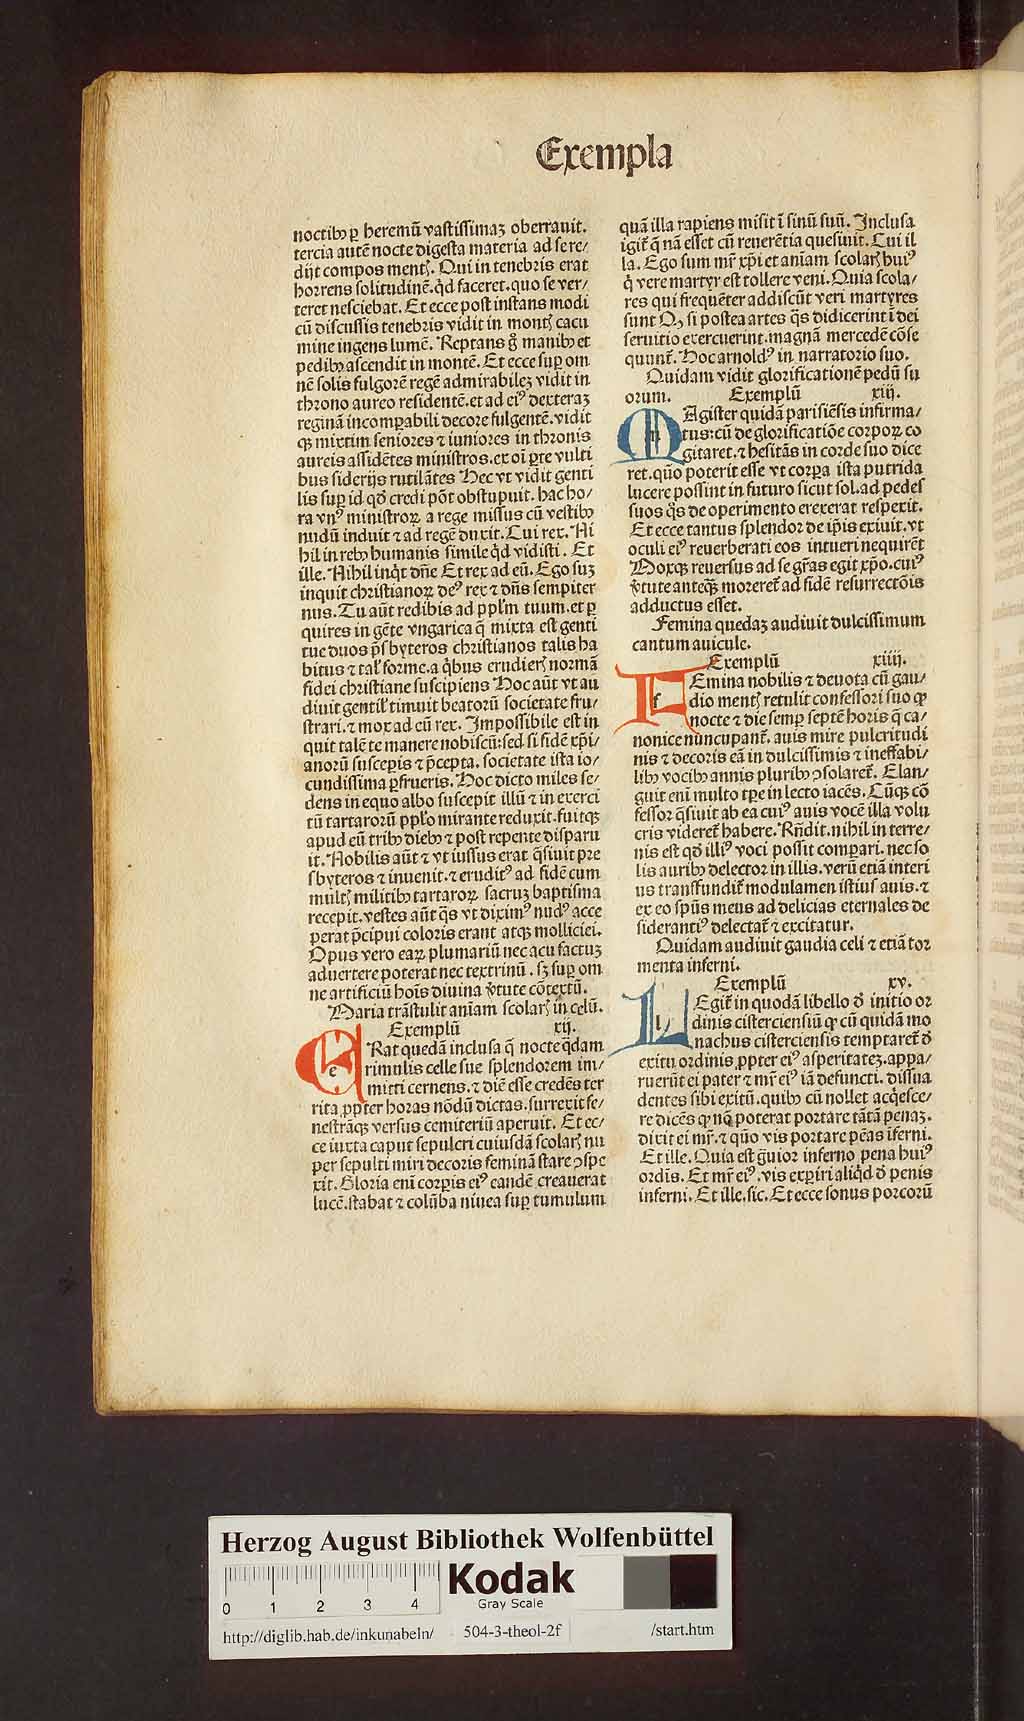 Exempla
noctibꝫ ꝑ heremū vastissimaꝫ oberrauit.
tercia autē nocte digesta materia ad se re/
dijt compos mentꝭ. Qui in tenebris erat
horrens solitudinē. qͥd faceret. quo se ver/
teret nesciebat. Et ecce post instans modi
cū discussis tenebris vidit in montꝭ cacu
mine ingens lumē. Reptans gͦ manibꝫ et
pedibꝫ ascendit in montē. Et ecce suꝑ om
nē solis fulgorē regē admirabileꝫ vidit in
throno aureo residentē. et ad eiꝰ dexteraꝫ
reginā incomꝑabili decore fulgentē. vidit
qꝫ mixtim seniores ⁊ iuniores in thronis
aureis assidētes ministros. ex oī ꝑte vulti
bus siderijs rutilātes Hec vt vidit genti
lis suꝑ id qd̄ credi pōt obstupuit. hac ho/
ra vnꝰ ministroꝝ a rege missus cū vestibꝫ
nudū induit ⁊ ad regē duxit. Cui rex. Ni
hil in rebꝫ humanis simile qͥd vidisti. Et
ille. Nihil inqͥt dn̄e Et rex ad eū. Ego suꝫ
inquit christianoꝝ deꝰ rex ⁊ dn̄s sempiter
nus. Tu aūt redibis ad ppl̄m tuum. et ꝑ
quires in gēte vngarica q̄ mixta est genti
tue duos p̄sbyteros christianos talis ha
bitus ⁊ tal̕ forme. a qͥbus erudierꝭ normā
fidei christiane suscipiens Hoc aūt vt au
diuit gentil̕ timuit beatorū societate fru/
strari. ⁊ mox ad cū rex. Impossibile est in
quit talē te manere nobiscū: sed si fidē xp̄i/
anorū susceperis ⁊ p̄cepta. societate ista io/
cundissima ꝑfrueris. Hoc dicto miles se/
dens in equo albo suscepit illū ⁊ in exerci
tū tartarorū ppl̓o mirante reduxit. fuitqꝫ
apud eū tribꝫ diebꝫ ⁊ post repente disparu
it. Nobilis aūt ⁊ vt iussus erat qͣsiuit pre
sbyteros ⁊ inuenit. ⁊ eruditꝰ ad fidē cum
multꝭ militibꝫ tartaroꝝ sacruꝫ baptisma
recepit. vestes aūt qͣs vt diximꝰ nudꝰ acce
perat p̄cipui coloris erant atqꝫ molliciei.
Opus vero eaꝝ plumariū nec acu factuꝫ
aduertere poterat nec textrinū. sꝫ suꝑ om
ne artificiū hoīs diuina v̓tute cōtextū.
Maria trāstulit aniam scolarꝭ in celū.
Exemplū xij.
ERat quedā inclusa q̄ nocte qͣdam
rimulis celle sue splendorem im/
mitti cernens. ⁊ diē esse credēs ter
rita ꝓpter horas nōdū dictas. surrexit fe/
nestrāqꝫ versus cemiteriū aperuit. Et ec/
ce iuxta caput sepulcri cuiusdā scolarꝭ nu
per sepulti miri decoris feminā stare ↄspe
xit. Gloria enī corꝑis eiꝰ eandē creauerat
lucē. stabat ⁊ colūba niuea suꝑ tumulum
quā illa rapiens misit ī sinū suū. Inclusa
igit̄ q̄ nā esset cū reuerētia quesiuit. Cui il
la. Ego sum mr̄ xp̄i et aniam scolarꝭ huiꝰ
qͥ vere martyr est tollere veni. Quia scola/
res qui frequēter addiscūt veri martyres
sunt Qꝫ si postea artes qͣs didicerint ī dei
seruitio exercuerint. magnā mercedē cōse
quunt̄. Hoc arnoldꝰ in narratorio suo.
Quidam vidit glorificationē pedū su
orum. Exemplū xiij.
MAgister quidā parisiēsis infirma/
tus: cū de glorificatiōe corpoꝝ co
gitaret. ⁊ hesitās in corde suo dice
ret. quō poterit esse vt corꝑa ista putrida
lucere possint in futuro sicut sol. ad pedes
suos qͣs de operimento erexerat respexit.
Et ecce tantus splendor de ip̄is exiuit. vt
oculi eiꝰ reuerberati eos intueri nequirēt
Moxqꝫ reuersus ad se gr̄as egit xp̄o. cuiꝰ
v̓tute anteqꝫ moreret̄ ad fidē resurrectōis
adductus esset.
Femina quedaꝫ audiuit dulcissimum
cantum auicule.
Exemplū xiiij.
FEmina nobilis ⁊ deuota cū gau/
dio mentꝭ retulit confessori suo qꝫ
nocte ⁊ die semꝑ septē horis q̄ ca/
nonice nuncupant̄. auis mire pulcritudi
nis ⁊ decoris eā in dulcissimis ⁊ ineffabi/
libꝫ vocibꝫ annis pluribꝫ ↄsolaret̄. Elan/
guit enī multo tꝑe in lecto iacēs. Cūqꝫ cō
fessor qͣsiuit ab ea cuiꝰ auis vocē illa volu
cris videret̄ habere. Rn̄dit. nihil in terre/
nis est qd̄ illiꝰ voci possit compari. nec so
lis auribꝫ delector in illis. verū etiā interi
us transfundit̄ modulamen istius auis. ⁊
ex eo sp̄us meus ad delicias eternales de
siderantiꝰ delectat̄ ⁊ excitatur.
Quidam audiuit gaudia celi ⁊ etiā tor
menta inferni.
Exemplū xv.
LEgit̄ in quodā libello d̓ initio or
dinis cisterciensiū qꝫ cū quidā mo
nachus cisterciensis temptaret̄ d̓
exitu ordinis ꝓpter eiꝰ asperitateꝫ. appa/
ruerūt ei pater ⁊ mr̄ eiꝰ iā defuncti. dissua
dentes sibi exitū. quibꝫ cū nollet acqͥesce/
re dicēs qꝫ nqͣ poterat portare tātā penaꝫ.
dixit ei mr̄. ⁊ quō vis portare pēas īferni.
Et ille. Quia est gͣuior inferno pena huiꝰ
ordīs. Et mr̄ eiꝰ. vis exꝑiri aliqͥd d̓ penis
inferni. Et ille. sic. Et ecce sonus porcorū
Herzog August Bibliothek Wolfenbüttel
0 1 2 3 4
Kodak
Gray Scale
http://diglib.hab.de/inkunabeln/ 504-3-theol-2f /start.htm